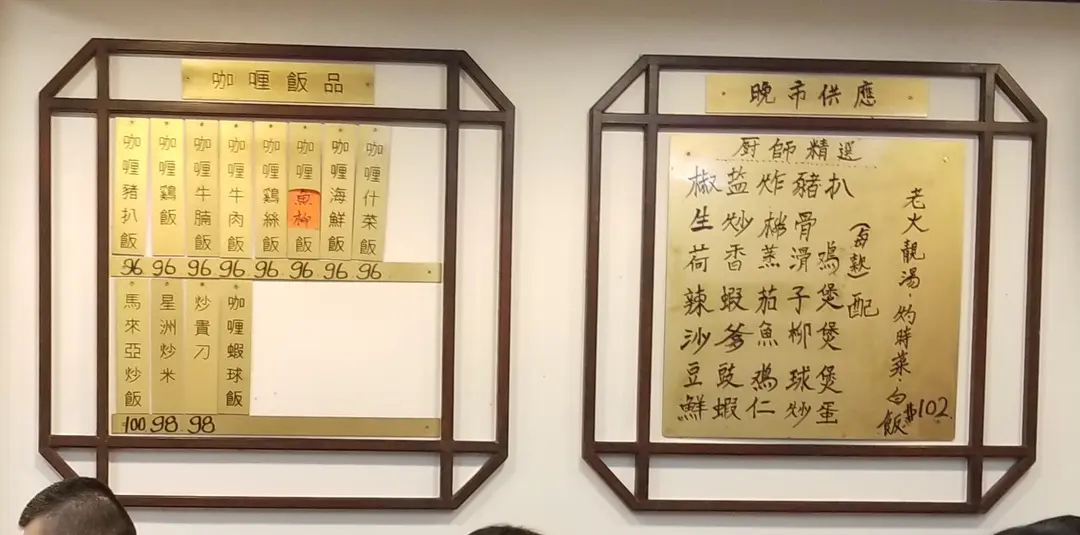 咖喱飯品
咖喱豬扒飯
咖喱鷄飯
咖喱牛腩飯
咖喱牛肉飯
咖喱鷄絲飯
咖喱魚柳飯
咖喱海鮮飯
咖喱什菜飯
96 96 96 96 96 96 96 96
馬來亞炒飯
星洲炒米
炒貴刀
咖喱蝦球飯
100 98 98
晚市供應
厨師精選
椒盐炸豬扒
生炒排骨
荷香蒸滑鸡
辣蝦茄子煲
沙爹魚柳煲
豆豉鸡球煲
鮮蝦仁炒蛋
配
老火靚湯·灼時菜·白飯
$102